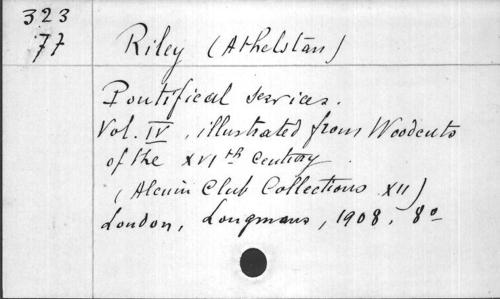 323
77
Riley (Athelstan)
Pontifical services.
Vol. IV, illustrated from Woodcuts
of the XVIth Century
(Alcuin Club Collections XII)
London, Longmans, 1908, 8o